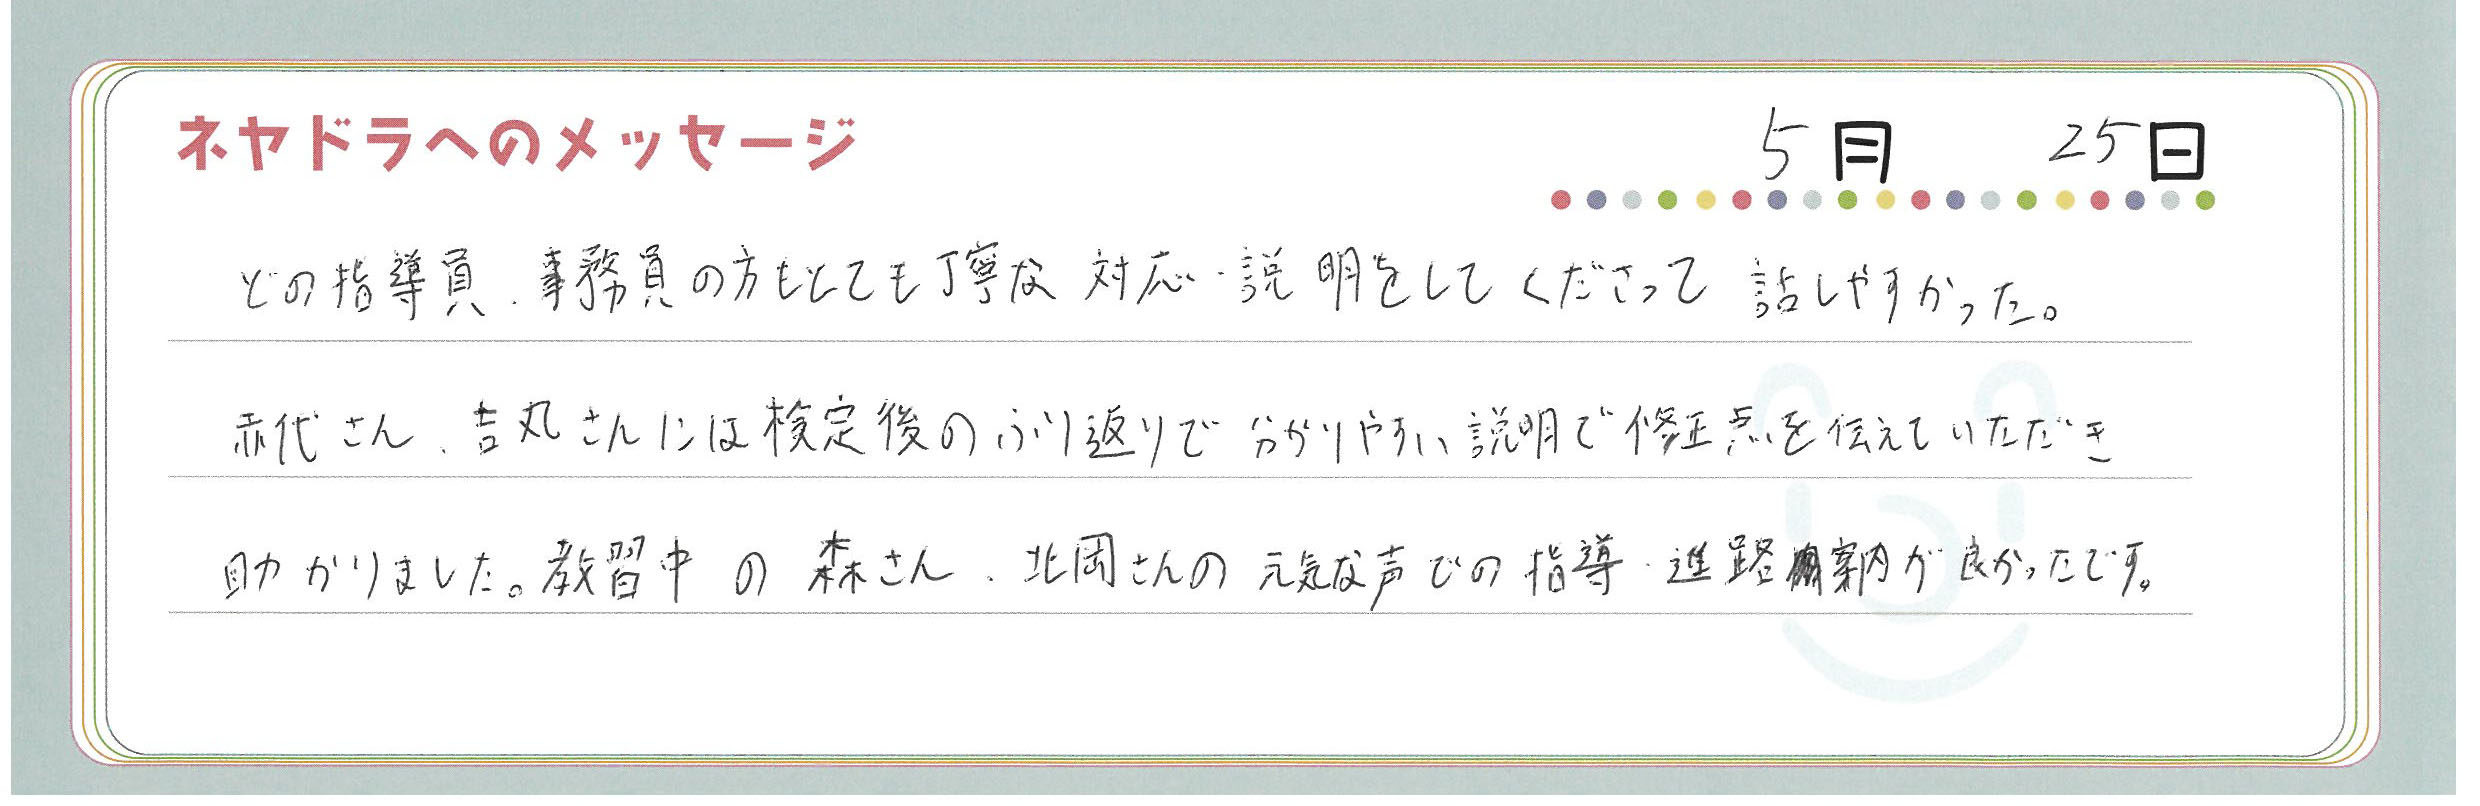 ネヤドラへのメッセージ
5月 25日
どの指導員、事務員の方もとても丁寧な対応・説明をしてくださって話しやすかった。
赤代さん、吉丸さんには検定後のふり返りで分かりやすい説明で修正点を伝えていただき
助かりました。教習中の森さん、北岡さんの元気な声での指導・進路案内が良かったです。